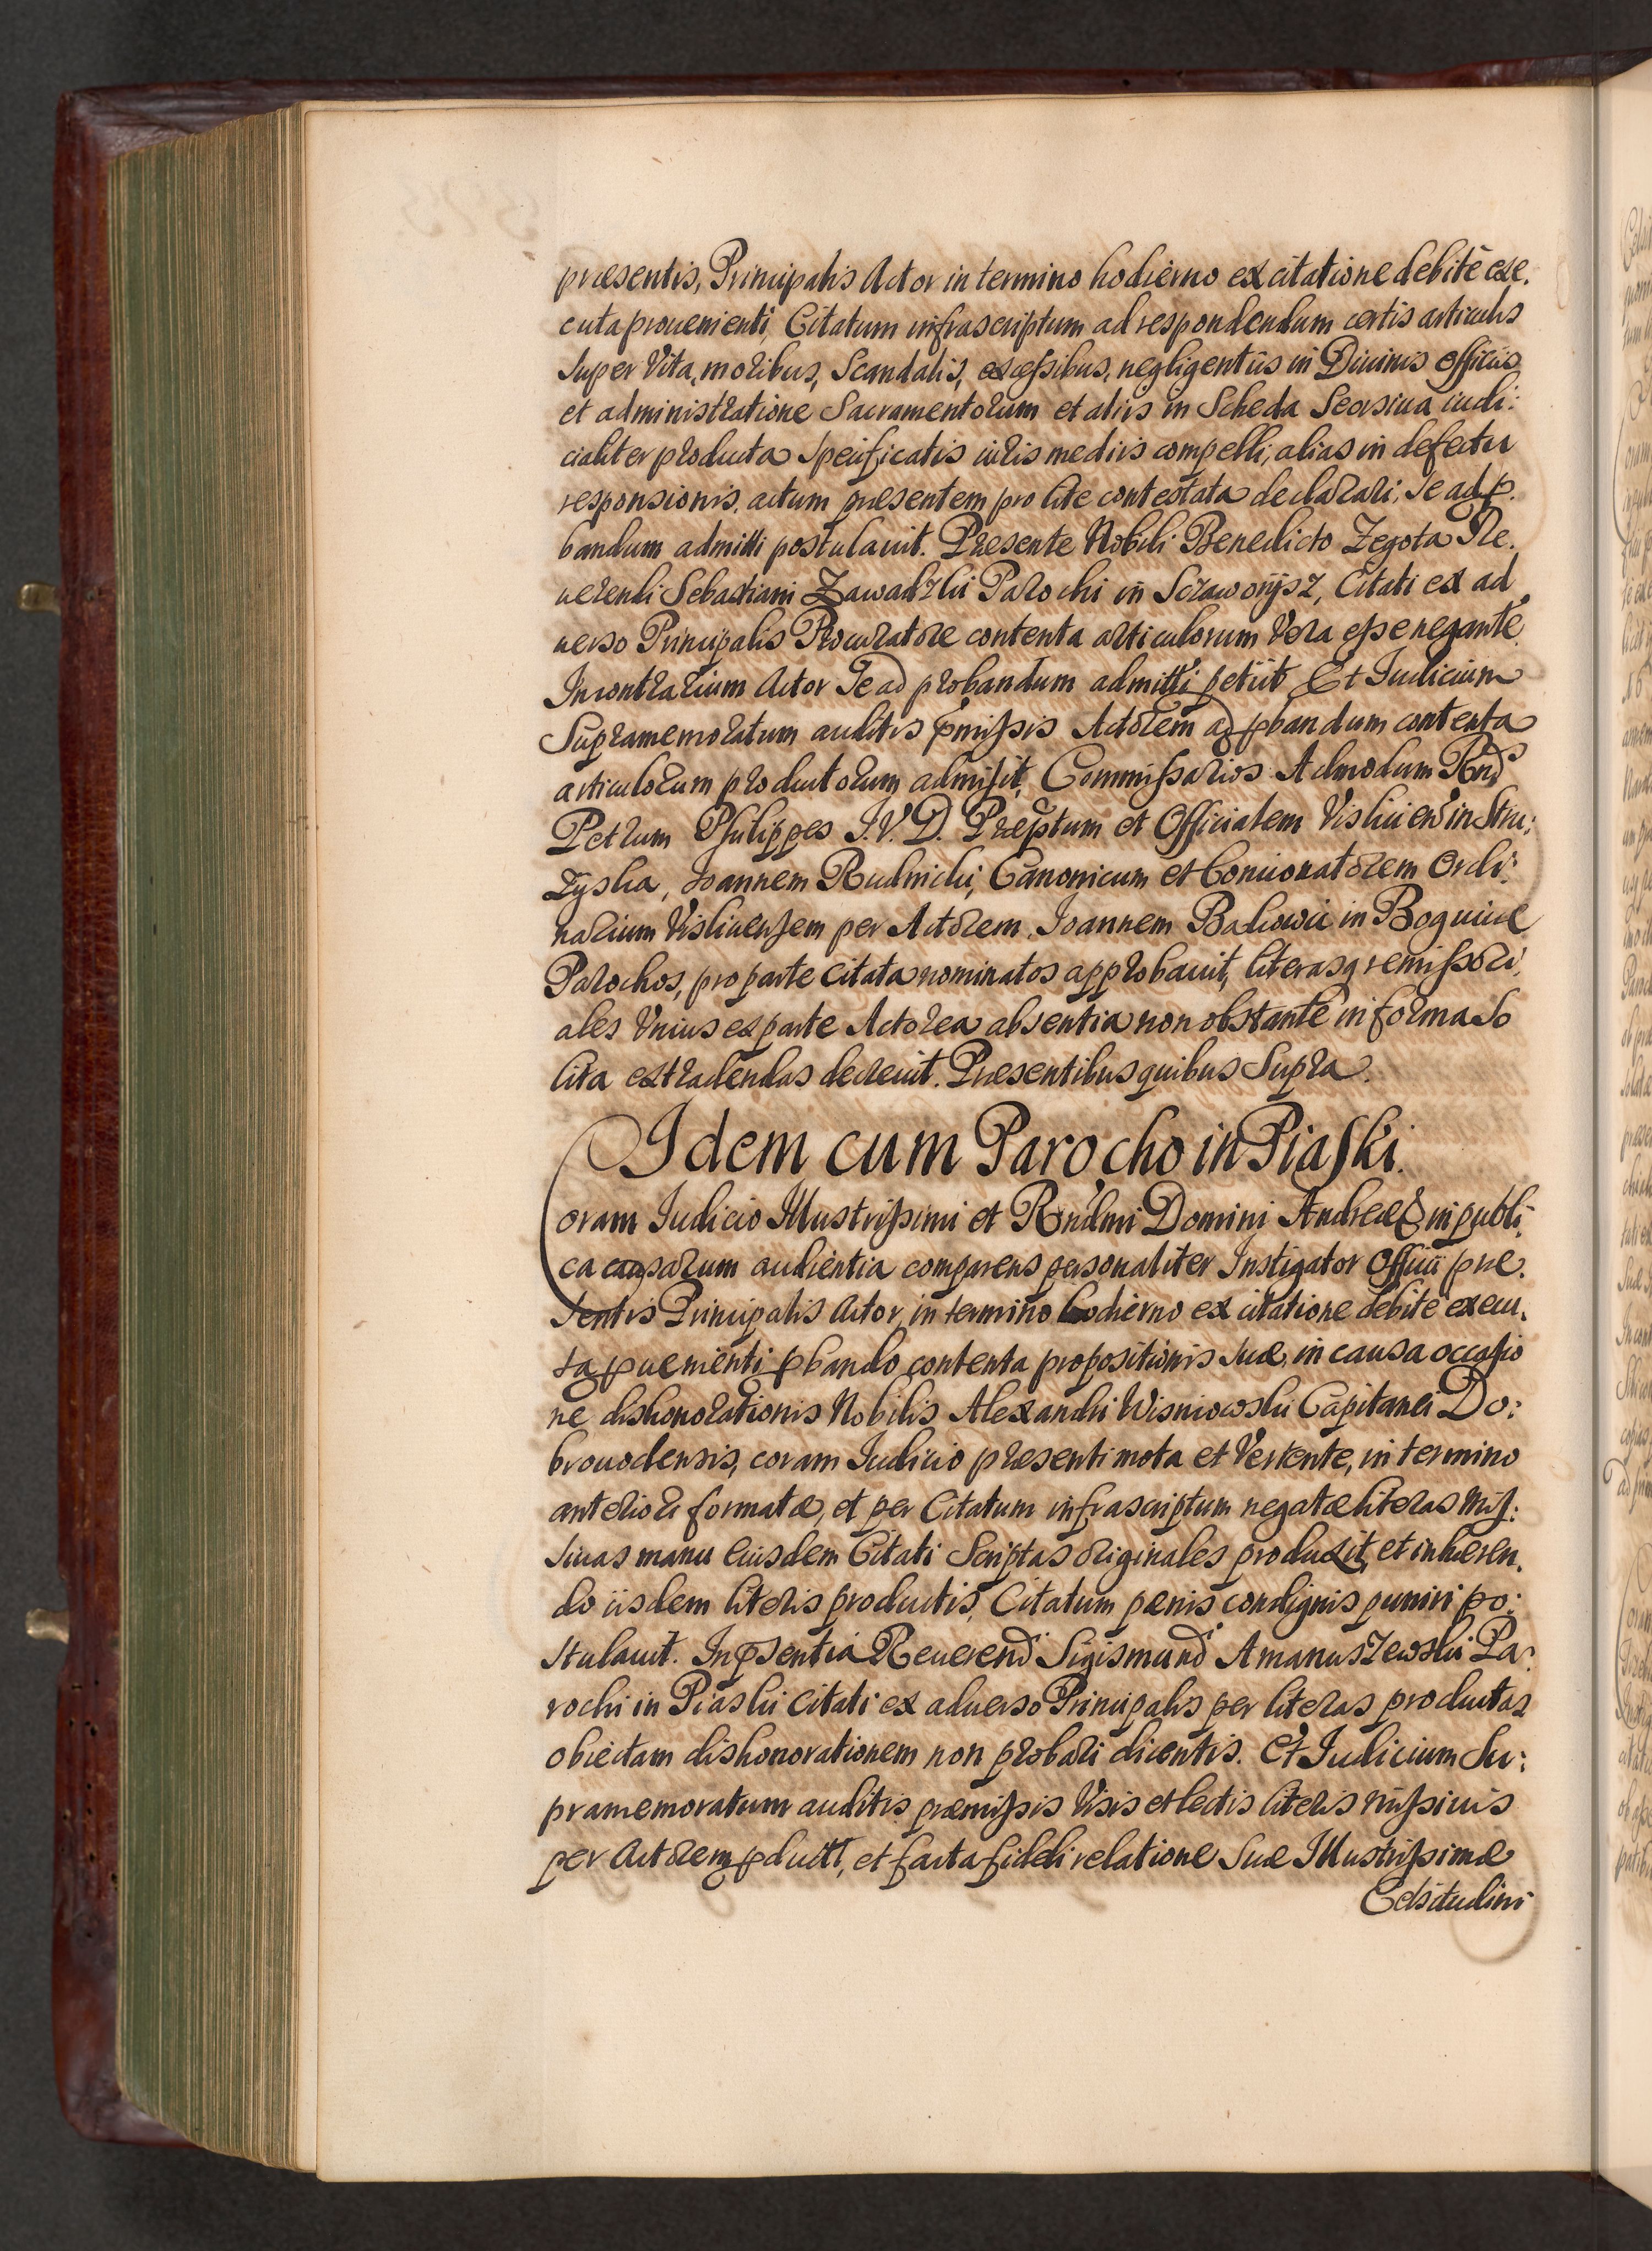 præsentis, Principalis Actor in termino hodierno ex citatione debitè exe.
cuta prouenienti, Citatum infrascriptum ad respondendum certis articulis
super Vita, moribus, Scandalis, excessibus, negligentiis in Diuinis officiis
et administratione Sacramentorum et aliis in Scheda Seorsiua iudi:
cialiter producta specificatis iuris mediis compelli, alias in defectu
responsionis, actum præsentem pro lite contestata declarari, se ad p.
bandum admitti postulauit. Præsente Nobili Benedicto Zegota Re.
uerendi Sebastiani Zawadzki Parochi in Citati ex ad
uerso Principalis Procuratore contenta articulorum Vera esse negante.
In contrarium Actor Se ad probandum admitti petiit Et Iudicium
Supramemoratum auditis pmissis Actorem ad pbandum contenta
articulorum productorum admisit, Commissarios Admodum Rnd
Petrum Philippes I.V.D. Præptum et Officialem Vislicien in Stru:
Zyska, Joannem Rudnicki, Canonicum et Concionatorem Ordi:
narium Vislicensem per Actorem, Joannem in
Parochos, pro parte Citata nominatos approbauit, literasq remissori
ales Vnius ex parte Actorea absentia non obstante in forma So
lita extradendas decreuit. Præsentibus quibus Supra.
Idem cum Parocho in Piaski.
Coram Iudicio Illustrissimi et Rndmi Domini Andreæ & in publi
ca causarum audientia comparens personaliter Instigator Officii præ.
sentis Principalis Actor, in termino hodierno ex citatione debitè execu.
ta puenienti pbando contenta propositionis suæ, in causa occasio
ne dishonorationis Nobilis Alexandri Wisniowski Capitanei Do:
brouodensis, coram Iudicio præsenti mota et Vertente, in termino
anteriori formatæ, et per Citatum infrascriptum negatæ literas mis:
siuas manu eiusdem Citati Scriptas originales produxit, et inhæren.
do iisdem literis productis, Citatum pœnis condignis puniri po:
stulauit. In psentia Reuerend Sigismund Amanuszewski Pa:
rochi in Piaski Citati ex aduerso Principalis per literas productas
obiectam dishonorationem non probari dicentis. Et Iudicium Su:
pramemoratum auditis præmissis Visis et lectis literis missiuis
per Actorem pductt, et facta fideli relatione Suæ Illustrissimæ
Celsitudini